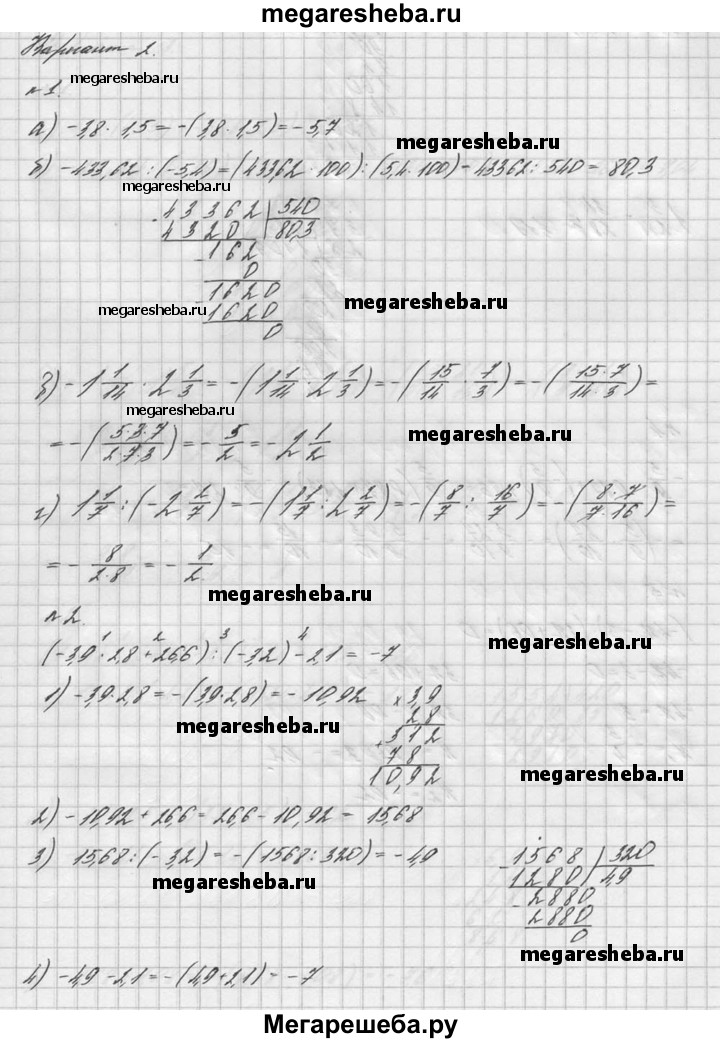 megaresheba.ru
Вариант 2.
megaresheba.ru
№1.
а) -3,8 · 1,5 = -(3,8 · 1,5) = -5,7
megaresheba.ru
б) -433,62 : (-5,4) = (433,62 · 100) : (5,4 · 100) - 43362 : 540 = 80,3
megaresheba.ru
43362 | 540
4320 | 80,3
162
0
1620
megaresheba.ru
megaresheba.ru
1620
0
в) -1 1/14 · 2 1/3 = -(1 1/14 · 2 1/3) = -(15/14 · 7/3) = -(15·7/14·3) =
megaresheba.ru
= -(5·3·7/2·7·3) = -5/2 = -2 1/2
megaresheba.ru
г) 1 1/7 : (-2 2/7) = -(1 1/7 : 2 2/7) = -(8/7 : 16/7) = -(8·7/7·16) =
= -8/2·8 = -1/2.
megaresheba.ru
№2.
1 2 3 4
(-3,9 · 2,8 + 26,6) : (-3,2) - 2,1 = -7
megaresheba.ru
1) -3,9·2,8 = -(3,9·2,8) = -10,92
× 3,9
2 8
megaresheba.ru
+ 312
78
10,92
megaresheba.ru
2) -10,92 + 26,6 = 26,6 - 10,92 = 15,68
3) 15,68 : (-3,2) = -(1568 : 320) = -4,9
1568 | 320
megaresheba.ru
1280 | 4,9
2880
2880
0
megaresheba.ru
4) -4,9 - 2,1 = -(4,9 + 2,1) = -7
Мегарешеба.ру